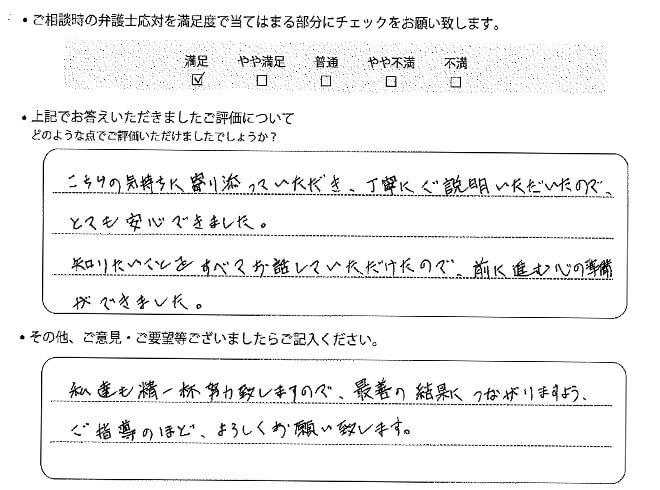 ・ご相談時の弁護士応対を満足度で当てはまる部分にチェックをお願い致します。
満足 やや満足 普通 やや不満 不満
☑ ☐ ☐ ☐ ☐
・上記でお答えいただきましたご評価について
どのような点でご評価いただけましたでしょうか?
こちらの気持ちに寄り添っていただき、丁寧にご説明いただいたので、
とても安心できました。
知りたいことをすべてお話していただけたので、前に進む心の準備
ができました。
・その他、ご意見・ご要望等ございましたらご記入ください。
私達も精一杯努力致しますので、最善の結果につながりますよう、
ご指導のほど、よろしくお願い致します。